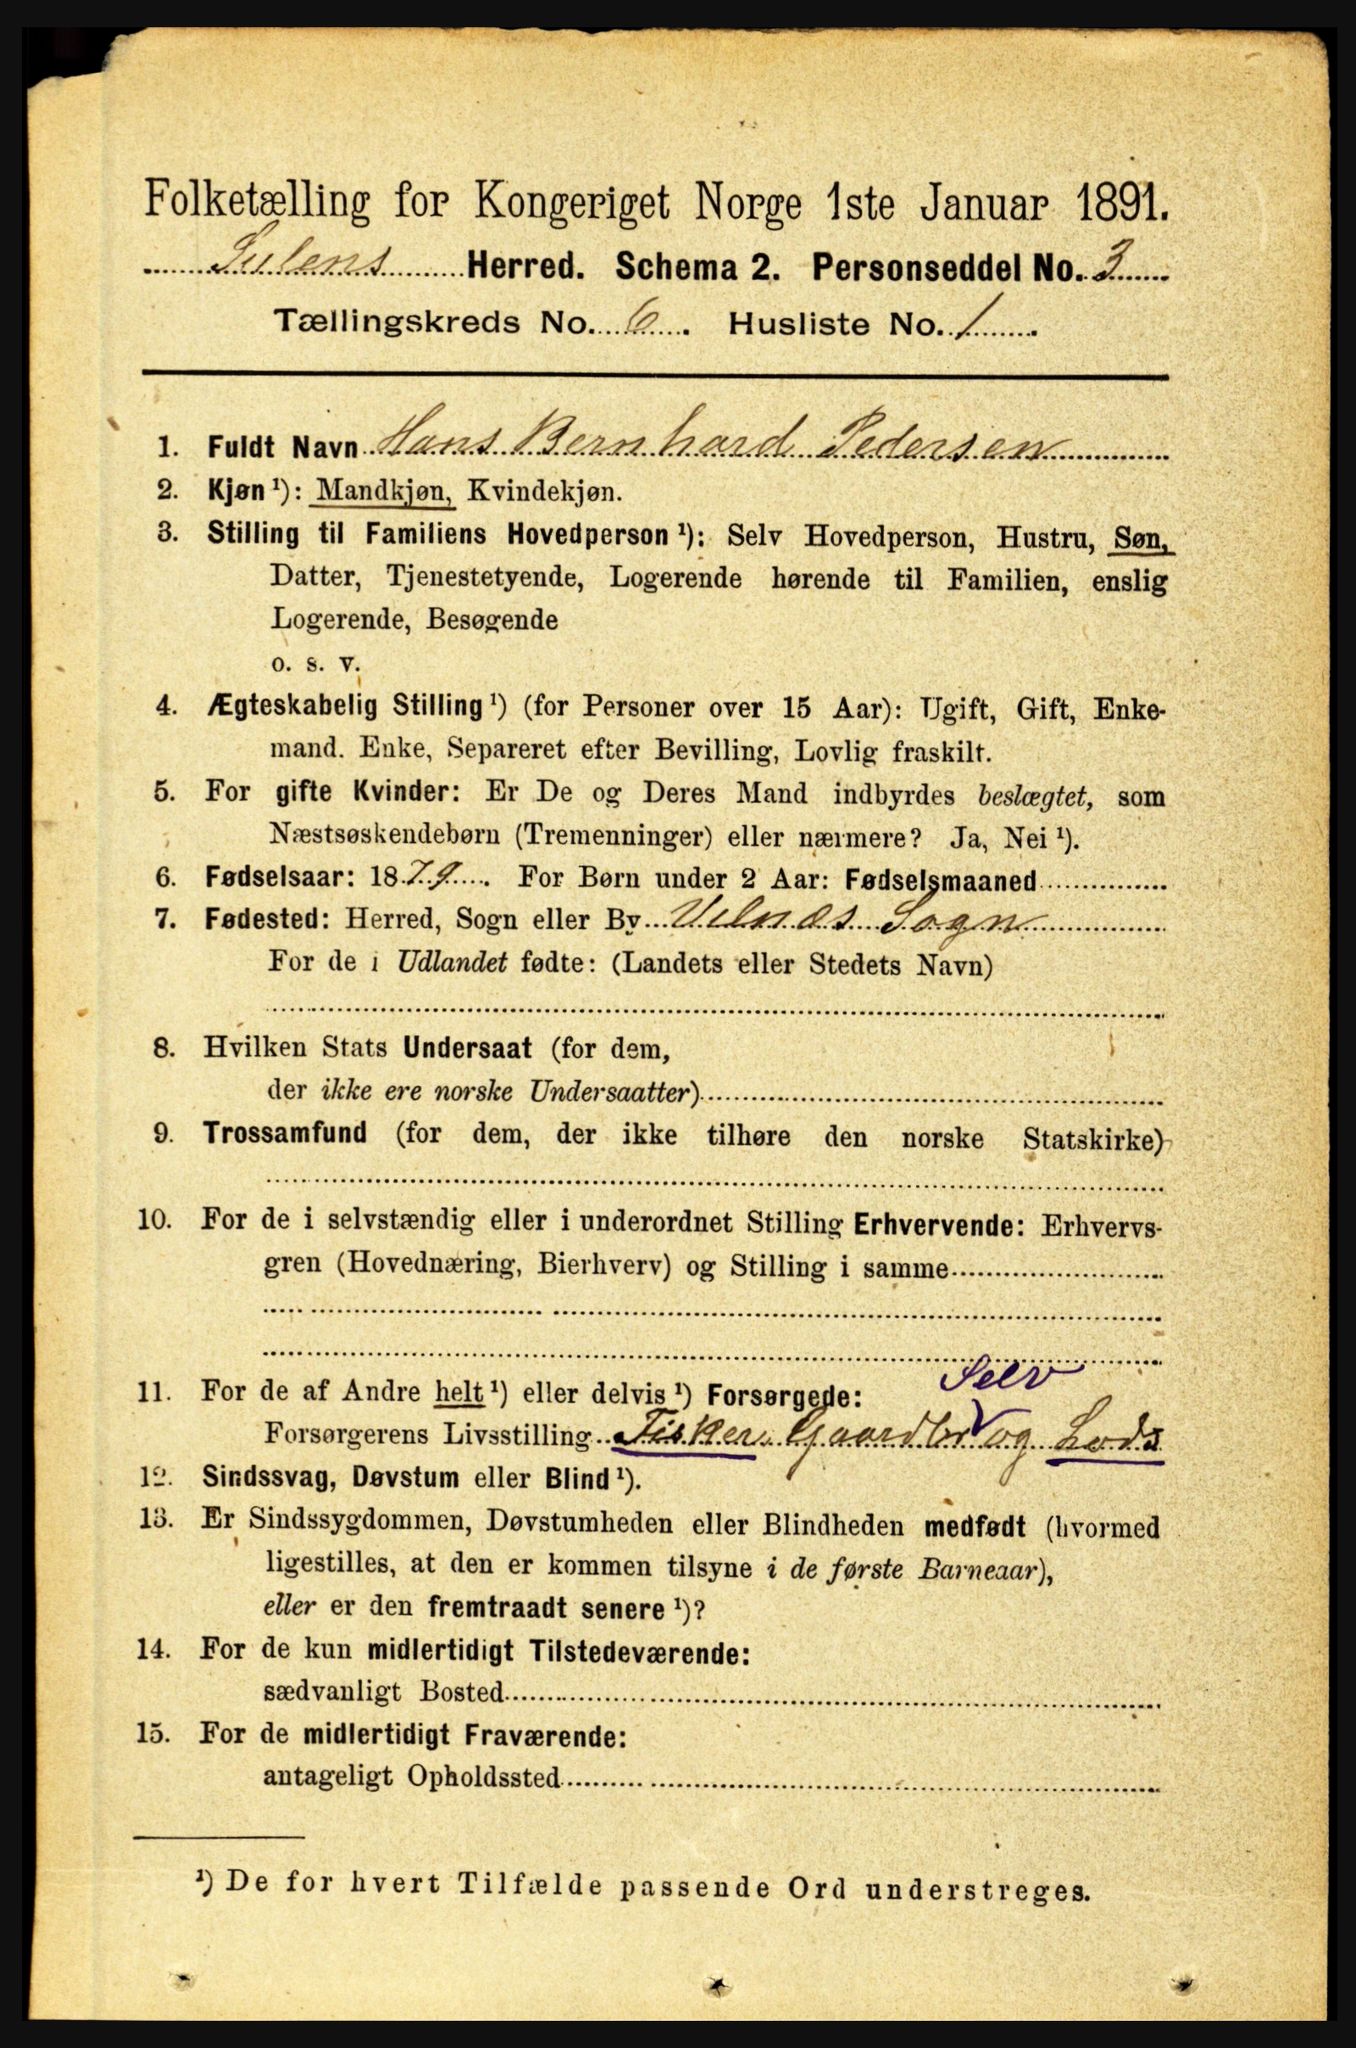 Folketælling for Kongeriget Norge 1ste Januar 1891.
Sulens Herred. Schema 2. Personseddel No. 3
Tællingskreds No. 6. Husliste No. 1.
1. Fuldt Navn Hans Bernhard Pedersen
2. Kjøn ¹): Mandkjøn, Kvindekjøn.
3. Stilling til Familiens Hovedperson ¹): Selv Hovedperson, Hustru, Søn,
Datter, Tjenestetyende, Logerende hørende til Familien, enslig
Logerende, Besøgende
o. s. v.
4. Ægteskabelig Stilling ¹) (for Personer over 15 Aar): Ugift, Gift, Enke-
mand. Enke, Separeret efter Bevilling, Lovlig fraskilt.
5. For gifte Kvinder: Er De og Deres Mand indbyrdes beslægtet, som
Næstsøskendebørn (Tremenninger) eller nærmere? Ja, Nei ¹).
6. Fødselsaar: 1879. For Børn under 2 Aar: Fødselsmaaned
7. Fødested: Herred, Sogn eller By Utvæs Sogn
For de i Udlandet fødte: (Landets eller Stedets Navn)
8. Hvilken Stats Undersaat (for dem,
der ikke ere norske Undersaatter)
9. Trossamfund (for dem, der ikke tilhøre den norske Statskirke)
10. For de i selvstændig eller i underordnet Stilling Erhvervende: Erhvervs-
gren (Hovednæring, Bierhverv) og Stilling i samme
Selv
11. For de af Andre helt ¹) eller delvis ¹) Forsørgede:
Forsørgerens Livsstilling Fisker, Gaardbr og Lods
12. Sindssvag, Døvstum eller Blind ¹).
13. Er Sindssygdommen, Døvstumheden eller Blindheden medfødt (hvormed
ligestilles, at den er kommen tilsyne i de første Barneaar),
eller er den fremtraadt senere ¹)?
14. For de kun midlertidigt Tilstedeværende:
sædvanligt Bosted
15. For de midlertidigt Fraværende:
antageligt Opholdssted
¹) De for hvert Tilfælde passende Ord understreges.